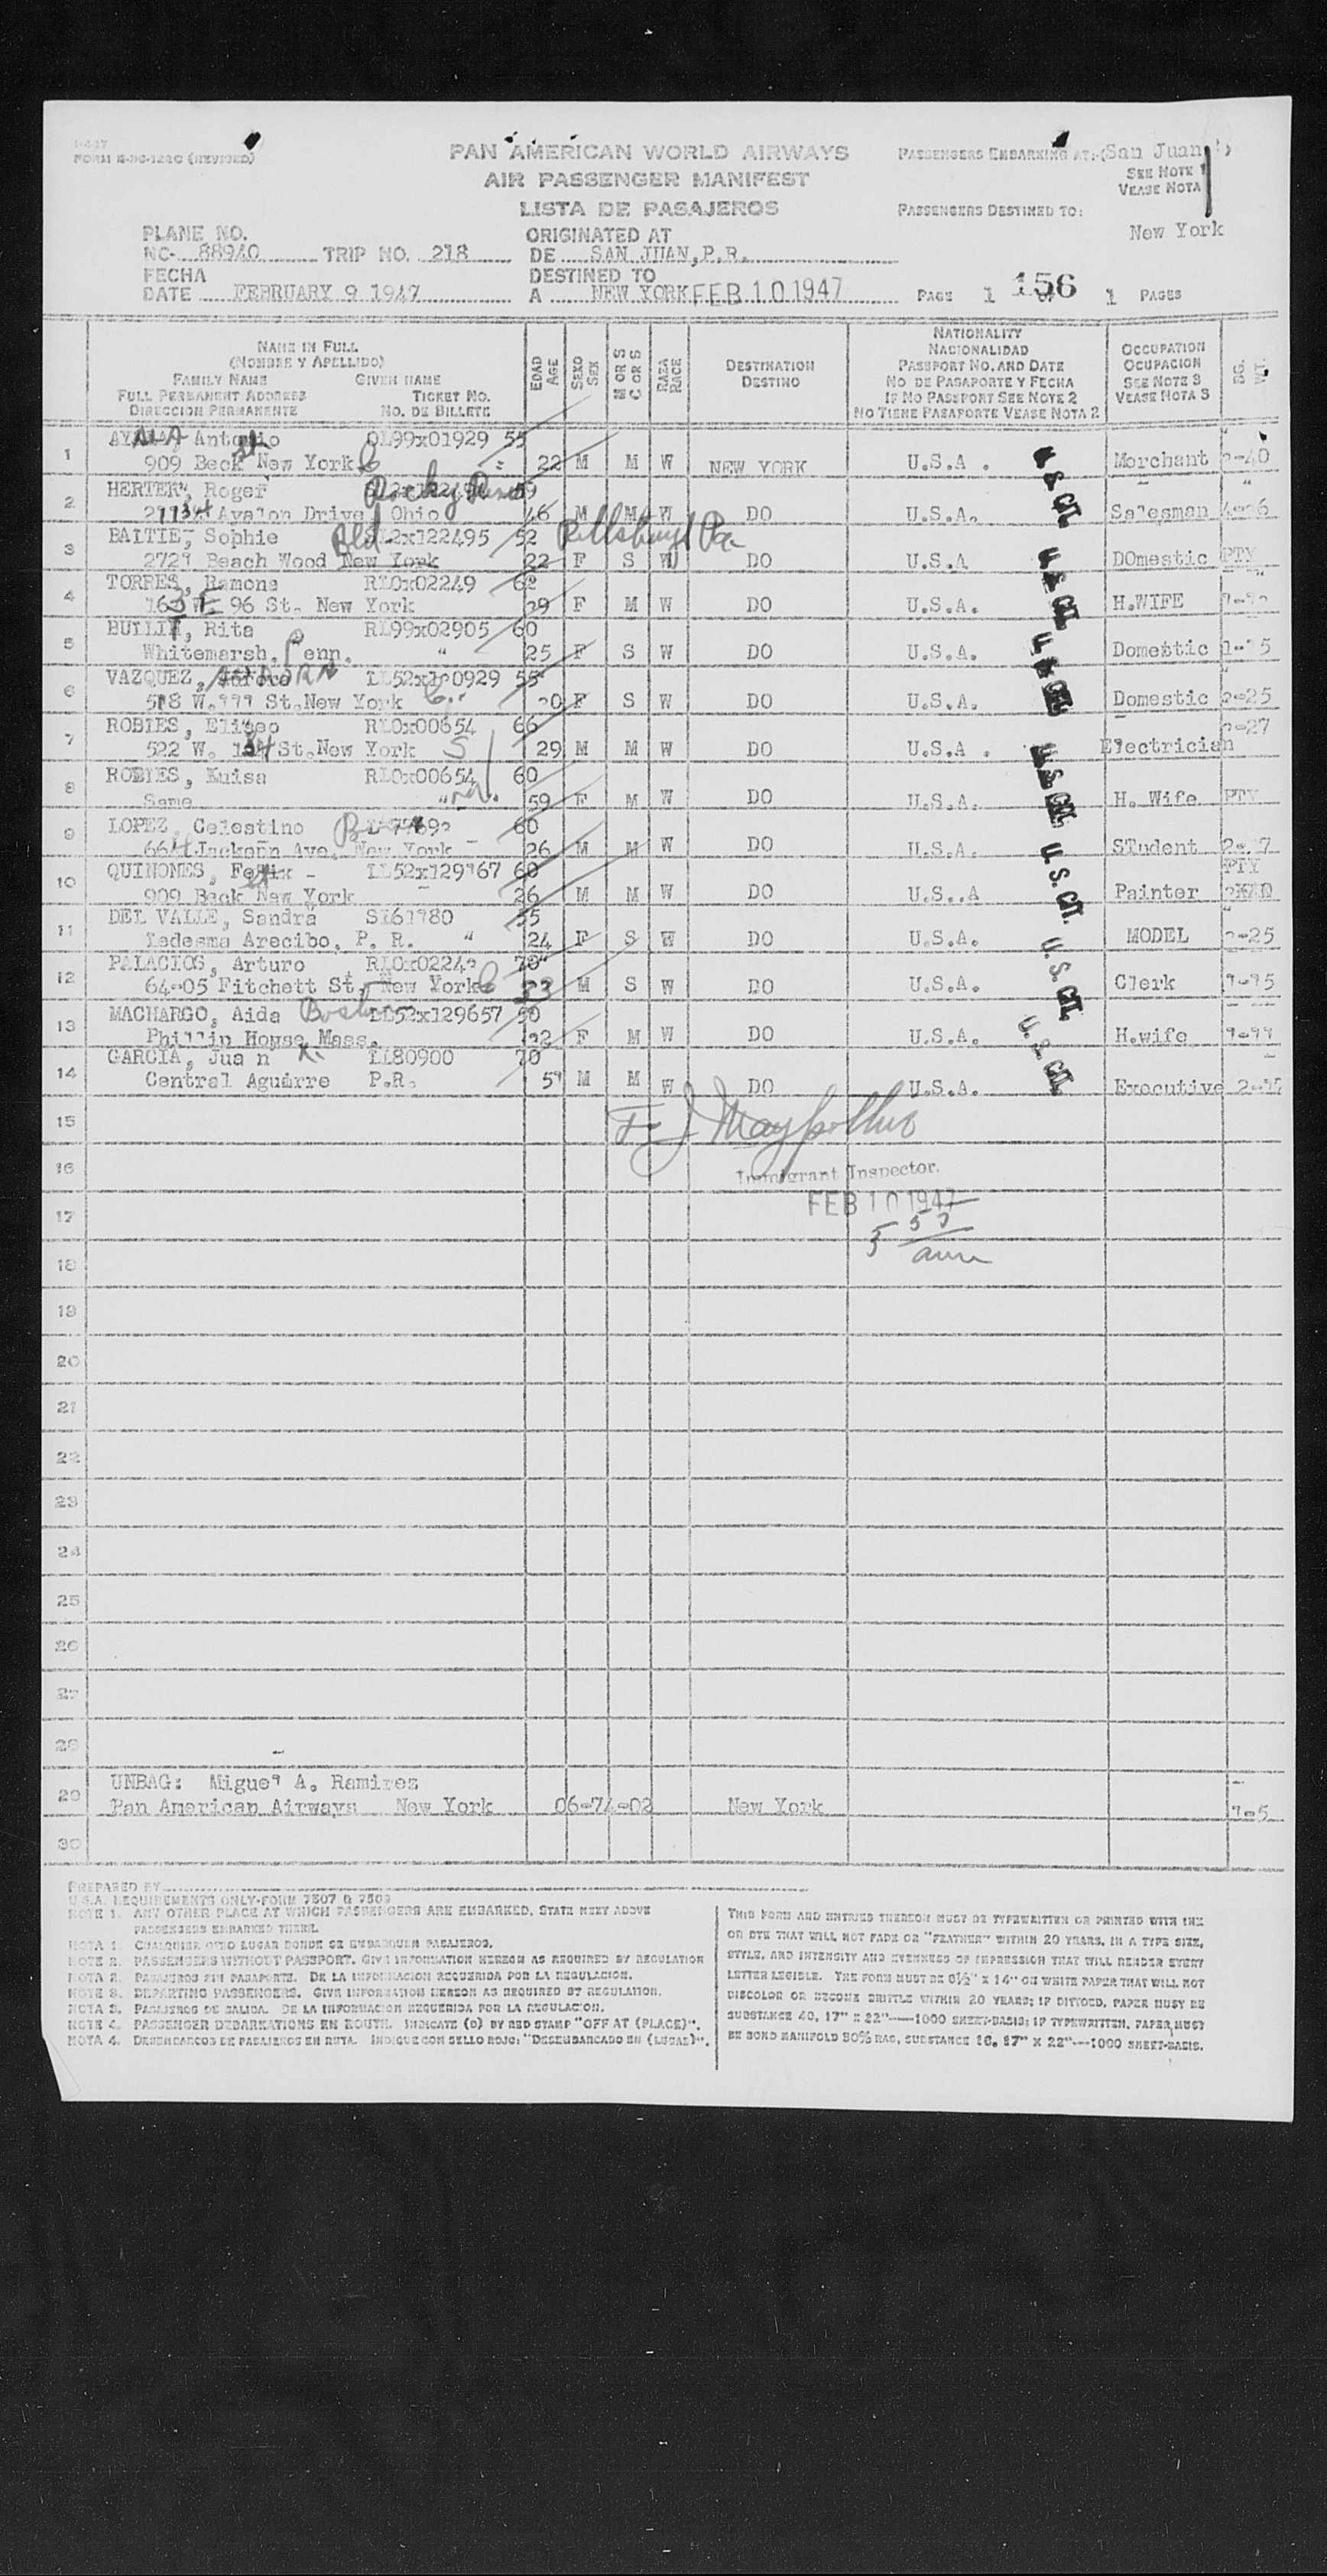 FORM (REVISED)
PAN AMERICAN WORLD AIRWAYS
AIR PASSENGER MANIFEST
LISTA DE PASAJEROS
PASSENGERS EMBARKING AT: (San Juan)
SEE NOTE 1
VEASE NOTA
PASSENGERS DESTINED TO:
New York
PLANE NO.
NC- 88940 TRIP NO. 218
ORIGINATED AT
DE SAN JUAN, P.R.
FECHA
DATE FEBRUARY 9 1947
DESTINED TO
A NEW YORK FEB 10 1947
PAGE 1 156 1 PAGES
NAME IN FULL
(NOMBRE Y APELLIDO)
FAMILY NAME GIVEN NAME
FULL PERMANENT ADDRESS TICKET NO.
DIRECCION PERMANENTE NO. DE BILLETE
EDAD AGE
SEXO SEX
M OR S C OR S
RAZA RACE
DESTINATION
DESTINO
NATIONALITY
NACIONALIDAD
PASSPORT NO. AND DATE
NO DE PASAPORTE Y FECHA
IF NO PASSPORT SEE NOTE 2
NO TIENE PASAPORTE VEASE NOTA 2
OCCUPATION
OCUPACION
SEE NOTE 3
VEASE NOTA 3
BG. WT.
1 AYALA Antonio 99x01929 55
909 Beck St New York 22 M M W NEW YORK U.S.A. U.S. CIT. Merchant
2 HERTER, Roger Rocky River 59
Avalon Drive Ohio 46 M M W DO U.S.A. Salesman
3 BALTIE, Sophie 2x122495 52 Pittsburgh Pa
Beach Wood New York 22 F S W DO U.S.A U.S. CIT. DOmestic PTY
4 TORRES, Ramona RL0x02249 62
163 E 96 St. New York 29 F M W DO U.S.A. H.WIFE
5 Rita RL99x02905 60
Whitemarsh, Penn. " 25 F S W DO U.S.A. Domestic
6 VAZQUEZ, 55
St. New York F S W DO U.S.A. Domestic 2-25
7 ROBLES, Eliseo RL0x00654 66
522 W. St. New York 29 M M W DO U.S.A. Electrician 2-27
8 ROBLES, RL0x00654 60
Same " 59 F M W DO U.S.A. U.S. CIT. H. Wife PTY
9 LOPEZ, Celestino 60
Jackson Ave. New York 26 M M W DO U.S.A. U.S. CIT. STudent
10 QUINONES, Felix - LL52x129167 60 PTY
909 Beck St New York 26 M M W DO U.S..A Painter
11 DEL VALLE, Sandra 55
Ledesma Arecibo, P. R. " 24 F S W DO U.S.A. U.S. CIT. MODEL 2-25
12 PALACIOS, Arturo 70
64-05 Fitchett St. New York M S W DO U.S.A. Clerk
13 MACHARGO, Aida Boston LL52x129657 50
Phillip House Mass. F M W DO U.S.A. U.S. CIT. H.wife
14 GARCIA, Juan LL80900 70
Central Aguirre P.R. M M W DO U.S.A. Executive
15
16 Immigrant Inspector.
17 FEB 10 1947
18
19
20
21
22
23
24
25
26
27
28
29 UNBAG: Miguel A. Ramirez
Pan American Airways New York 06-74-02 New York 1-5
30
PREPARED BY
U.S.A. REQUIREMENTS ONLY-FORM 7507 & 7509
NOTE 1. ANY OTHER PLACE AT WHICH PASSENGERS ARE EMBARKED, STATE NEXT ABOVE
PASSENGERS EMBARKED THERE.
NOTA 1. CUALQUIER OTRO LUGAR DONDE SE EMBARQUEN PASAJEROS.
NOTE 2. PASSENGERS WITHOUT PASSPORT. GIVE INFORMATION HEREON AS REQUIRED BY REGULATION
NOTA 2. PASAJEROS SIN PASAPORTE. DE LA INFORMACION REQUERIDA POR LA REGULACION.
NOTE 3. DEPARTING PASSENGERS. GIVE INFORMATION HEREON AS REQUIRED BY REGULATION.
NOTA 3. PASAJEROS DE SALIDA. DE LA INFORMACION REQUERIDA POR LA REGULACION.
NOTE 4. PASSENGER DEBARKATIONS EN ROUTE. INDICATE (D) BY RED STAMP "OFF AT (PLACE)".
NOTA 4. DESEMBARCOS DE PASAJEROS EN RUTA. INDIQUE CON SELLO ROJO: "DESEMBARCADO EN (LUGAR)".
THIS FORM AND ENTRIES THEREON MUST BE TYPEWRITTEN OR PRINTED WITH INK
OR DYE THAT WILL NOT FADE OR "FEATHER" WITHIN 20 YEARS, IN A TYPE SIZE,
STYLE, AND INTENSITY AND EVENNESS OF IMPRESSION THAT WILL RENDER EVERY
LETTER LEGIBLE. THE FORM MUST BE 8½" X 14" ON WHITE PAPER THAT WILL NOT
DISCOLOR OR BECOME BRITTLE WITHIN 20 YEARS; IF DITTOED, PAPER MUST BE
SUBSTANCE 40, 17" X 22"—1000 SHEET-BASIS; IF TYPEWRITTEN, PAPER MUST
BE BOND MANIFOLD 50% RAG, SUBSTANCE 16, 17" X 22"—1000 SHEET-BASIS.